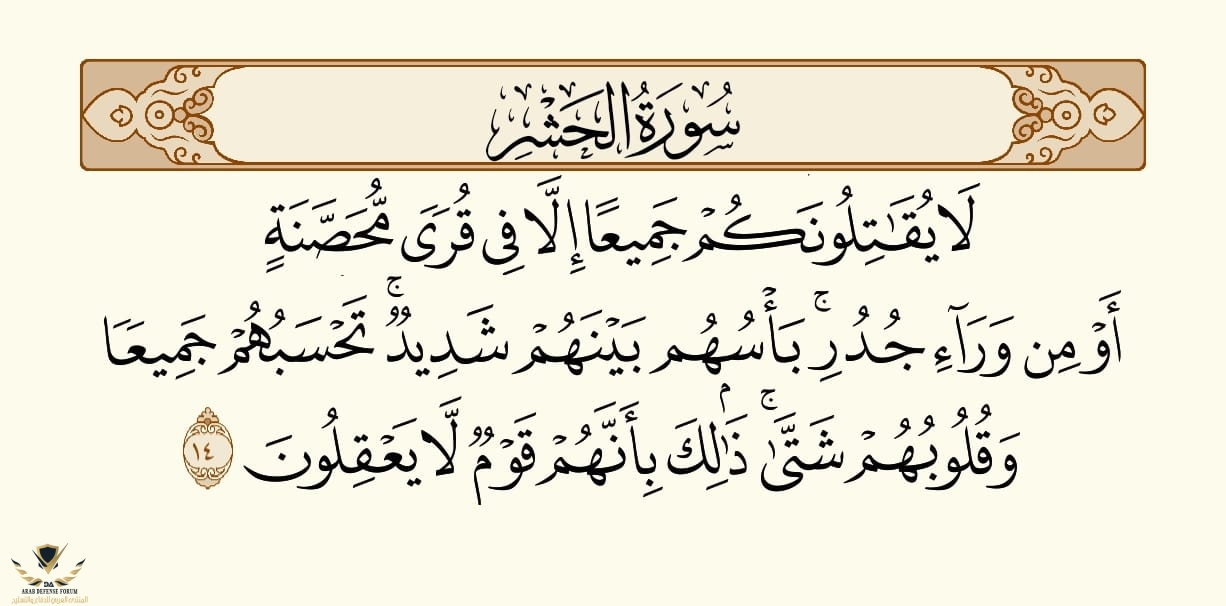 سُورَةُ الحَشْرِ
لَا يُقَٰتِلُونَكُمۡ جَمِيعًا إِلَّا فِي قُرٗى مُّحَصَّنَةٍ
أَوۡ مِن وَرَآءِ جُدُرِۭۚ بَأۡسُهُم بَيۡنَهُمۡ شَدِيدٞۚ تَحۡسَبُهُمۡ جَمِيعٗا
وَقُلُوبُهُمۡ شَتَّىٰۚ ذَٰلِكَ بِأَنَّهُمۡ قَوۡمٞ لَّا يَعۡقِلُونَ ١٤
DA
ARAB DEFENSE FORUM
المنتدى العربي للدفاع والتسليح